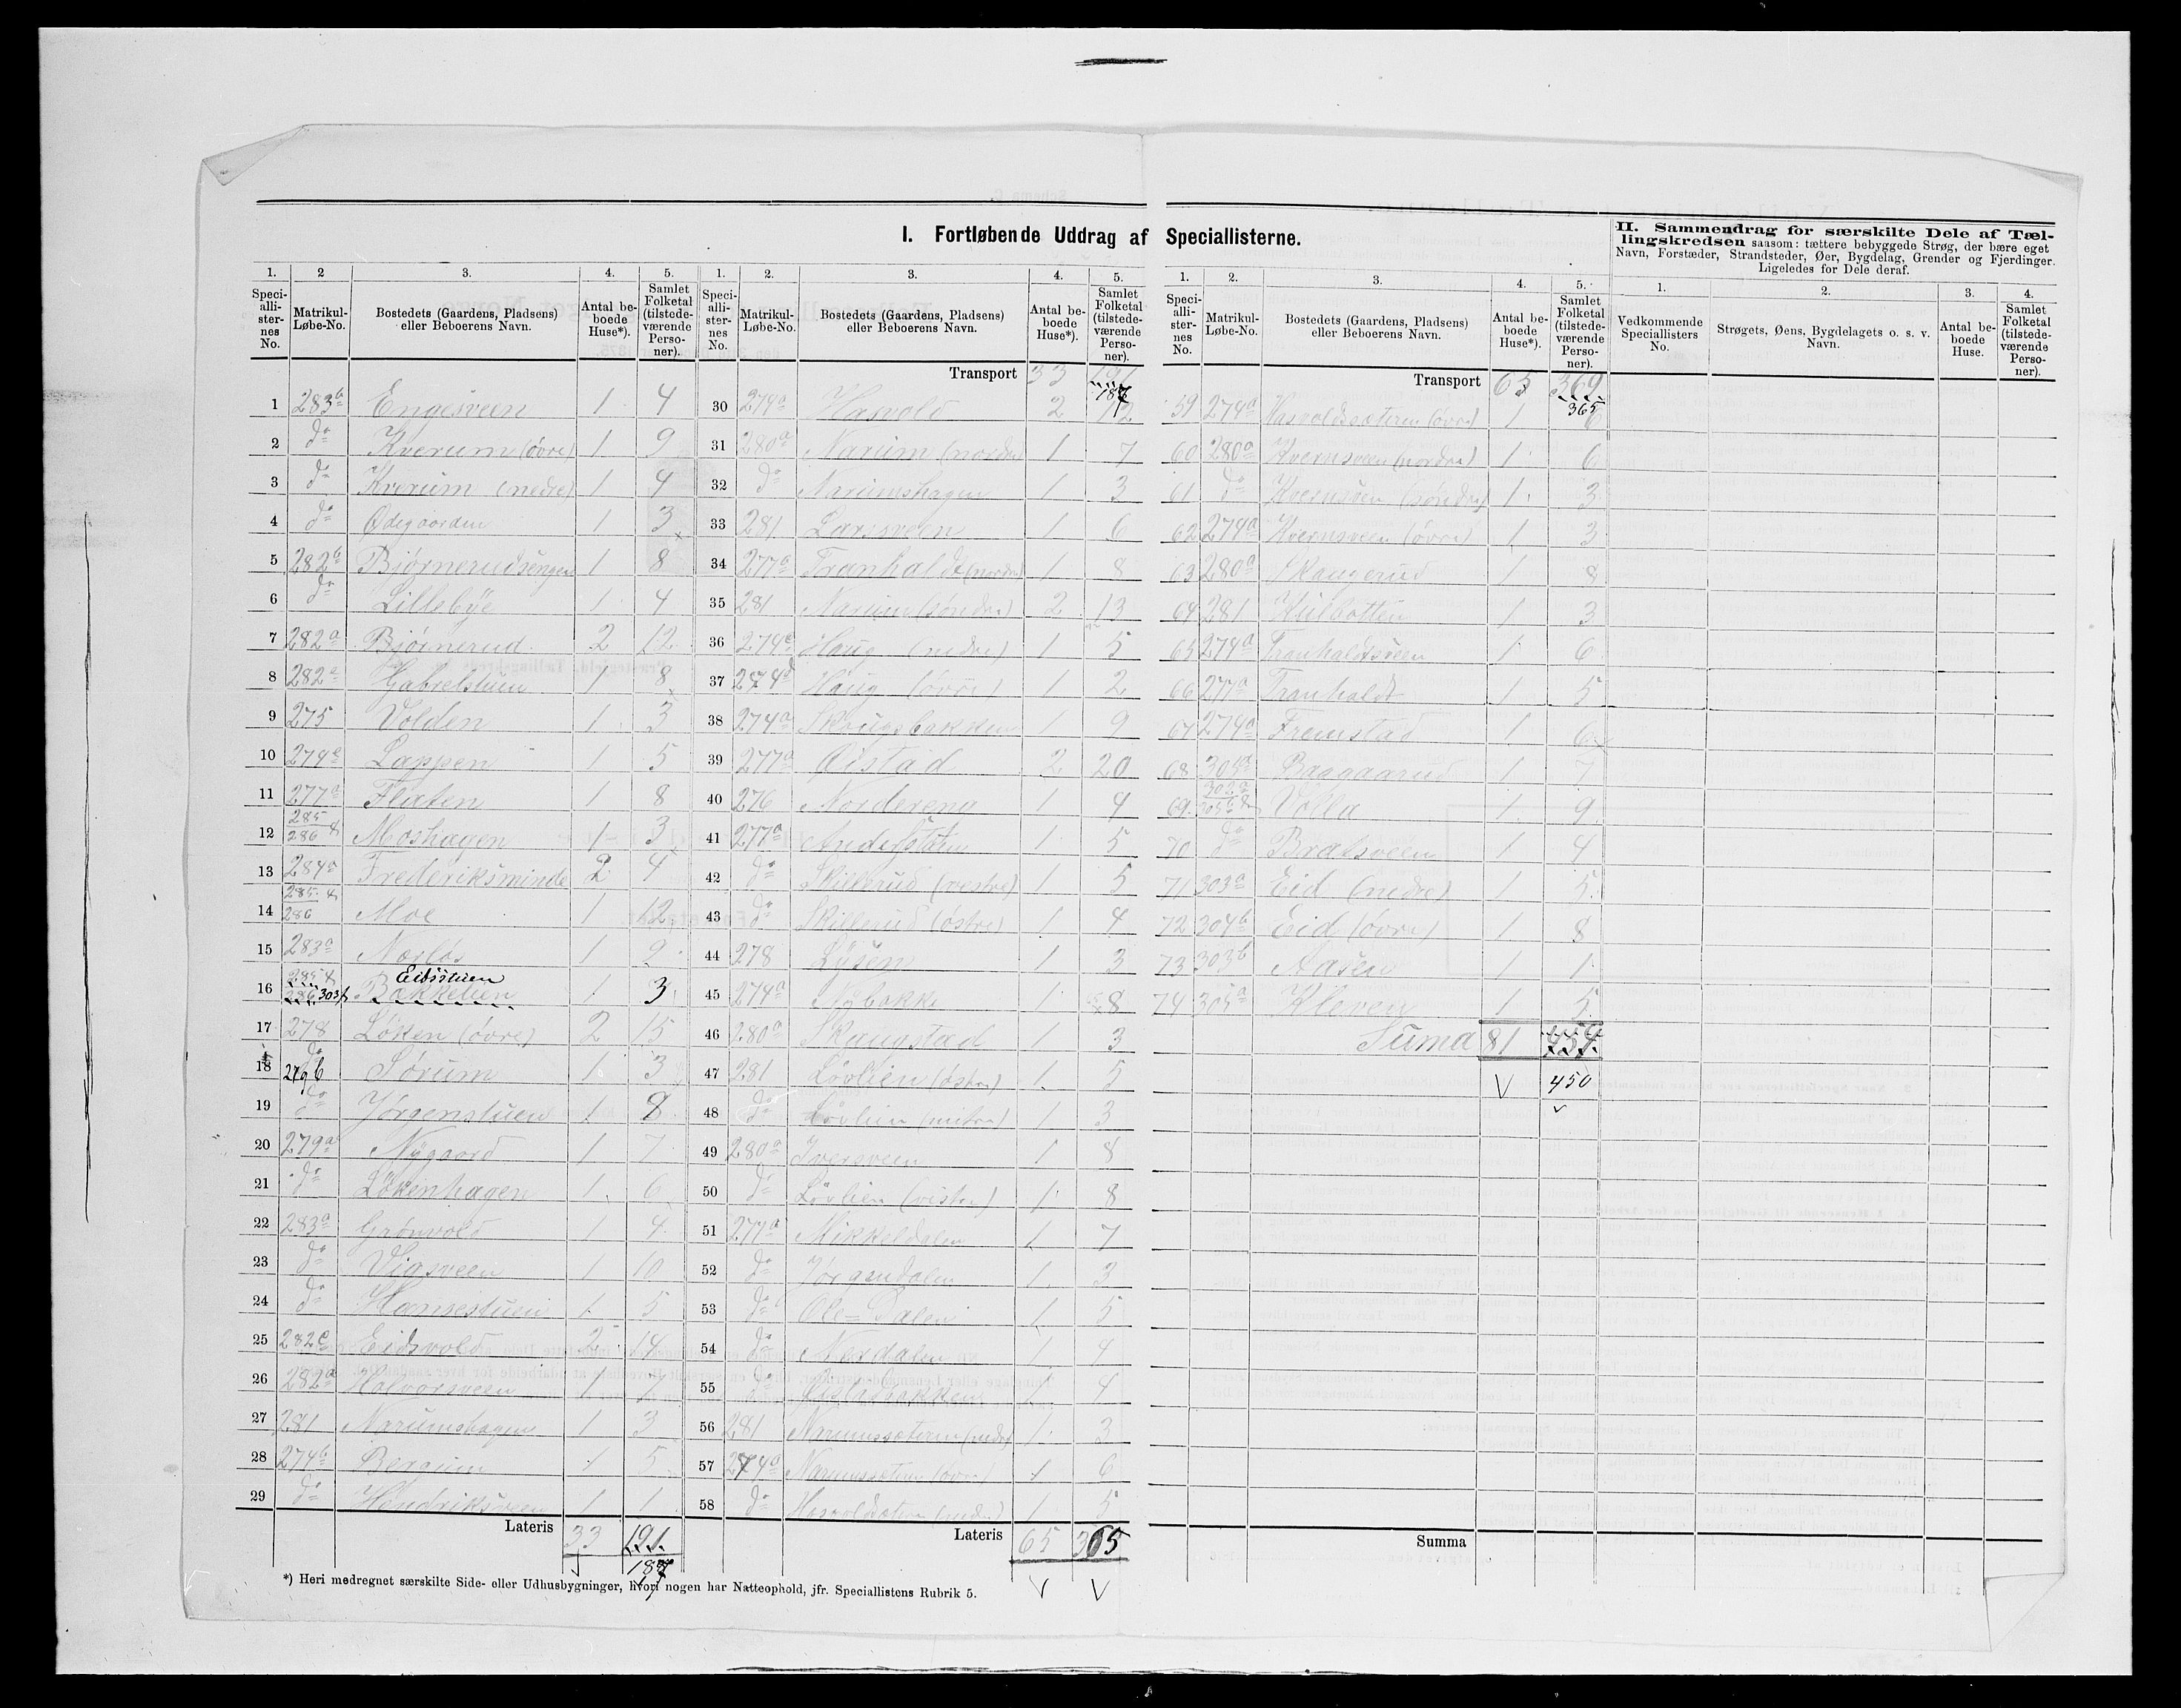 I. Fortløbende Uddrag af Speciallisterne.
1. 2 3. 4. 5.
Speciallisternes No. Matrikul-Løbe-No. Bostedets (Gaardens, Pladsens) eller Beboerens Navn. Antal beboede Huse*). Samlet Folketal (tilstedeværende Personer).
1 283b Engesveen 1 4
2 do Kverum (övre) 1 9
3 do Kverum (nedre) 1 4
4 do Ødegaarden 1 3
5 282b Bjørnerudsengen 1 8
6 do Lillebye 1 4
7 282a Bjørnerud 2 12
8 282a Gabrelstuen 1 8
9 275 Volden 1 3
10 274e Lappen 1 5
11 277a Flaten 1 8
12 285 & 286 Moshagen 1 3
13 284a Frederiksminde 2 4
14 285 & 286 Moe 1 12
15 283a Nærlös 1 2
16 285 & 286 303f Bakkelien Eidsstuen 1 3
17 278 Löken (övre) 2 15
18 do 279b Sörum 1 3
19 do Jörgenstuen 1 8
20 279a Nygaard 1 7
21 do Lökenhagen 1 6
22 283a Grönvold 1 4
23 do Vigsveen 1 10
24 do Hansestuen 1 5
25 282c Eidsvold 2 14
26 282a Halvorsveen 1 7
27 281 Narumshagen 1 3
28 274b Bergum 1 5
29 do Hendriksveen 1 1
Lateris 33 191
187
1. 2. 3. 4. 5.
Speciallisternes No. Matrikul-Løbe-No. Bostedets (Gaardens, Pladsens) eller Beboerens Navn. Antal beboede Huse*). Samlet Folketal (tilstedeværende Personer).
Transport 33 191
187
30 274a Hasvold 2 12
31 280a Narum (nordre) 1 7
32 do Narumshagen 1 3
33 281 Larsveen 1 6
34 277a Tranhaldt (nordre) 1 8
35 281 Narum (söndre) 2 13
36 274c Haug (nedre) 1 5
37 274d Haug (övre) 1 2
38 274a 1 9
39 277a Öistad 2 20
40 276 Nordereng 1 4
41 277a 1 5
42 do Skillerud (vestre) 1 5
43 do Skillerud (östre) 1 4
44 278 Lysen 1 3
45 274a Nybakke 1 8
46 280a Skaugstad 1 3
47 281 Lövlien (östre) 1 5
48 do Lövlien (mitre) 1 3
49 280a Iversveen 1 8
50 do Lövlien (vestre) 1 8
51 277a Mikkeldalen 1 7
52 do Jörgendalen 1 3
53 do Ole-Dalen 1 5
54 do Nordalen 1 4
55 do Öistadbakken 1 4
56 281 Narumssæteren (nedre) 1 3
57 274a Narumssæteren (övre) 1 6
58 do Hasvoldsæteren (nedre) 1 5
Lateris 65 365
1. 2. 3. 4. 5.
Speciallisternes No. Matrikul-Løbe-No. Bostedets (Gaardens, Pladsens) eller Beboerens Navn. Antal beboede Huse*). Samlet Folketal (tilstedeværende Personer).
Transport 65 369
365
59 274a Hasvoldsæteren (övre) 1 6
60 280a Kvernsveen (nordre) 1 6
61 do Kvernsveen (söndre) 1 3
62 274a Kvernsveen (övre) 1 3
63 280a Skaugerud 1 8
64 281 Hulbotten 1 3
65 274a Tranhaldtsveen 1 6
66 277a Tranhaldt 1 5
67 274a Fremstad 1 6
68 305a Baggaarud 1 7
69 302a & 305c Volla 1 9
70 do Bratsveen 1 4
71 303a Eid (nedre) 1 5
72 304b Eid (övre) 1 8
73 303b Aasen 1 1
74 305a Kleven 1 5
Suma 81 454
450
Summa
II. Sammendrag for særskilte Dele af Tællingskredsen saasom: tættere bebyggede Strøg, der bære eget Navn, Forstæder, Strandsteder, Øer, Bygdelag, Grender og Fjerdinger. Ligeledes for Dele deraf.
1. 2. 3. 4.
Vedkommende Speciallisters No. Strøgets, Øens, Bygdelagets o. s. v. Navn. Antal beboede Huse. Samlet Folketal (tilstedeværende Personer).
*) Heri medregnet særskilte Side- eller Udhusbygninger, hvori nogen har Natteophold, jfr. Speciallistens Rubrik 5.